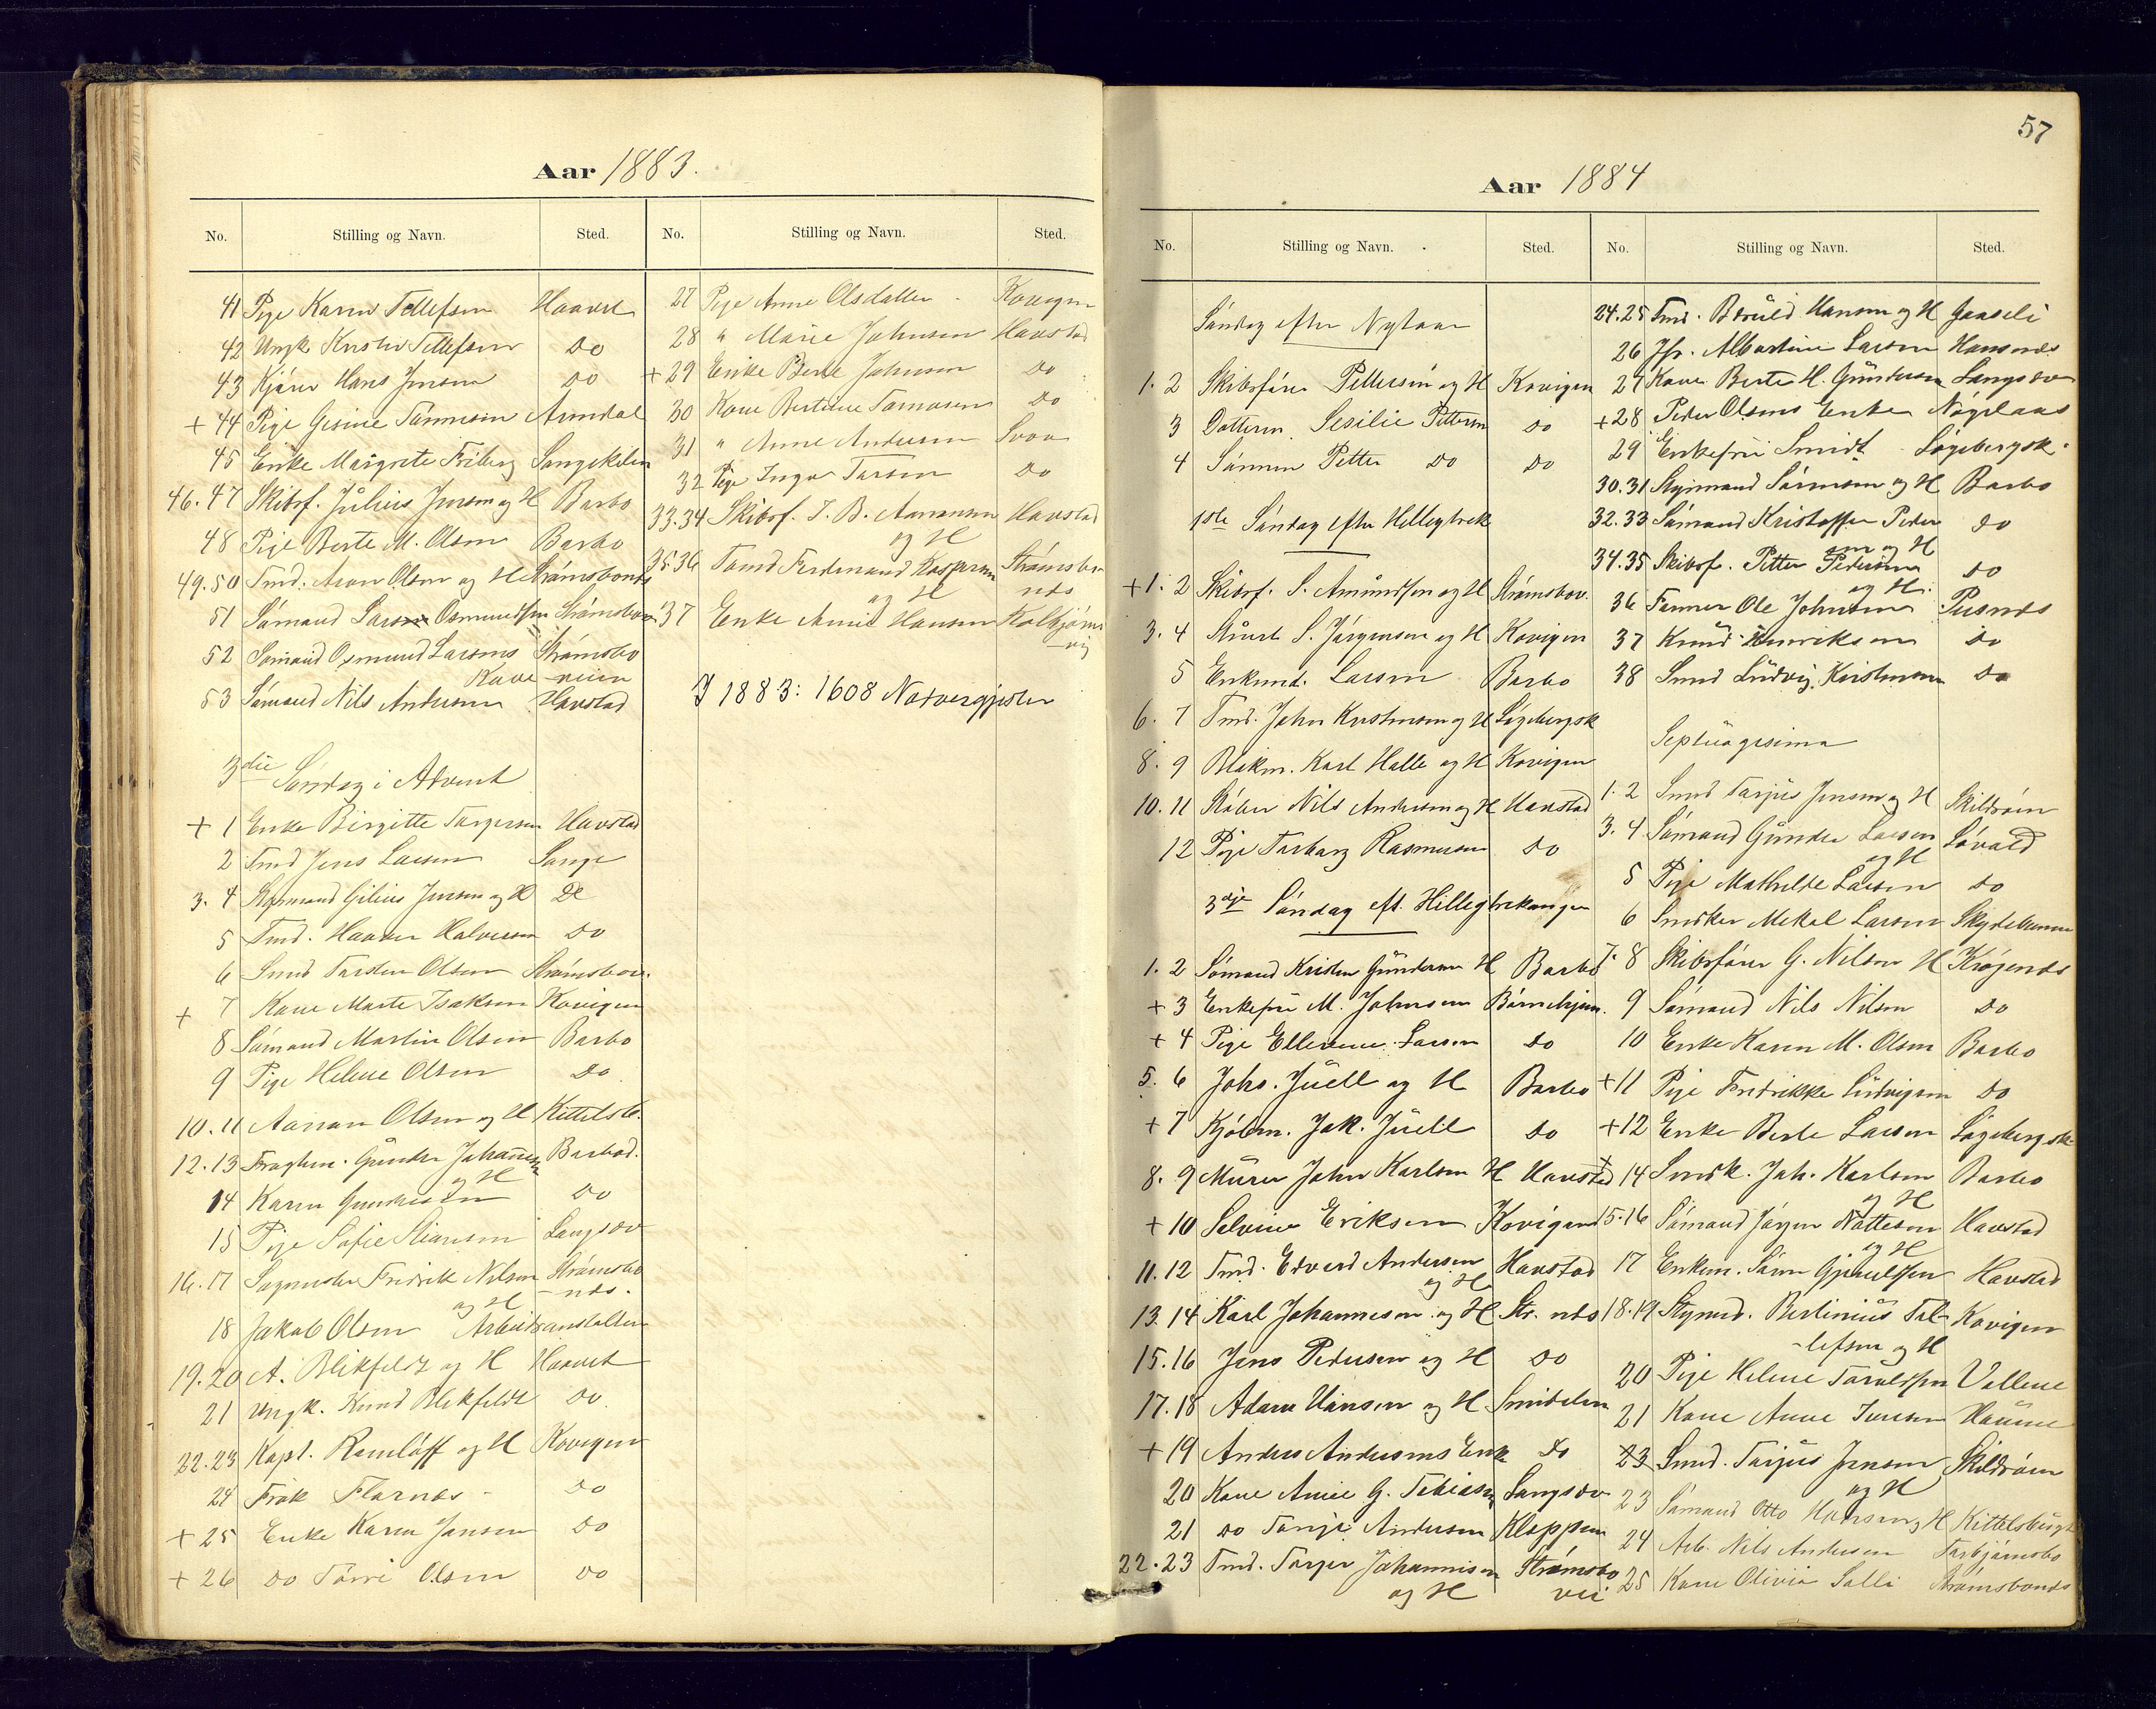 Aar 1883.
No. Stilling og Navn. Sted.
41 Pige Karen Tellefsen Haavet
42 Ungk Kristen Tellefsen Do
43 Kjører Hans Jensen Do
+ 44 Pige Gesine Tønnesen Arendal
45 Enke Margrete Friberg Langskilen
46. 47 Skibsf. Julius Jensen og H Barbo
48 Pige Berte M. Olsen Barbo
49. 50 Tmd. Aron Olsen og H Strømsbonds
51 Sømand Osmundsen Strømsbo
52 Sømand Osmund Larsens Strømsbo
Kone veien
53 Sømand Nils Andersen Havstad
3die Søndag i Advent
+ 1 Enke Birgitte Torgersen Havstad
2 Tmd Jens Larsen Lange
3. 4 Styrmand Gilius Jensen og H Do
5 Tmd. Haaver Halvorsen Do
6 Smd Torsten Olsen Strømsbov.
+ 7 Kone Marte Isaksen Kovigen
8 Sømand Martin Olsen Barbo
9 Pige Helene Olsen Do
10. 11 Aanon Olsen og H Kittelsb.
12. 13 Fragtm. Gunder Johannesen Barbod.
og H
14 Karen Gundersen Do
15 Pige Sofie Stiansen Langsov
16. 17 Sagmester Fredrik Nilsen Strømsbo
og H nds.
18 Jakob Olsen Arbeidsanstalten
19. 20 A. Blikfeldt og H Haavet
21 Ungk. Knud Blikfeldt Do
22. 23 Kapt. Ramløff og H Kovigen
24 Frøk Flornes Do
+ 25 Enke Karen Jansen Do
+ 26 Do Tørre Olsen Do
No. Stilling og Navn. Sted.
27 Pige Anne Olsdatter Kovigen
28 " Marie Johnsen Havstad
+ 29 Enke Berte Johnsen Do
30 Kone Bertine Tomasen Do
31 " Anne Andersen Svoa
32 Pige Inga Tarsen Do
33. 34 Skibsf. T. B. Aanensen Havstad
og H
35 36 Tømd Ferdinand Kaspersen Strømsbo
og H nds
37 Enke Anne Hansen Kolbjørns
vig
I 1883: 1608 Nadvergjester
57
Aar 1884
No. Stilling og Navn. Sted.
Søndag efter Nytaar
1. 2 Skibsfører Pettersen og H Kovigen
3 Datteren Sesilie Pettersen Do
4 Sønnen Petter Do Do
1ste Søndag efter Helligtrek
+ 1. 2 Skibsf. S. Amundsen og H Strømsbov.
3. 4 Stuert S. Jørgensen og H Kovigen
5 Enkemd. Larsen Barbo
6. 7 Tmd. John Kristensen og H Løgebergsk
8. 9 Blokm. Karl Halle og H Kovigen
10. 11 Støber Nils Andersen og H Havstad
12 Pige Torborg Rasmusen Do
3dje Søndag eft. Helligtrekonger
1. 2 Sømand Kristen Gundersen H Barbo
+ 3 Enkefru M. Johnsen Børnehjem.
+ 4 Pige Ellevine Larsen Do
5. 6 Johs. Juell og H Barbo
+ 7 Kjøbm. Jak. Juell Do
8. 9 Murer John Karlsen H Havstad
+ 10 Selvine Eriksen Kovigen
11. 12 Tmd. Edvard Andersen Havstad
og H
13. 14 Karl Johannesen og H Str. nds
15. 16 Jens Pedersen og H Do
17. 18 Adam Hansen og H Smidelen
+ 19 Anders Andersens Enke Do
20 Kone Anne G. Tobiasen Langsov
21 Do Tonje Andersen Kloppen
22. 23 Tmd. Torger Johannisen Strømsbo
og H vei
No. Stilling og Navn. Sted.
24. 25 Tmd. Baruld Hansen og H Gaaseli
26 Jfr. Albertine Larsen Hansnes
27 Kone Berte H. Gundersen Langsov
+ 28 Peder Olsens Enke Nøgelaas
29 Enkefru Smidt Løgebergsk.
30. 31 Styrmand Sørensen og H Barbo
32. 33 Sømand Kristoffer Peder Do
sen og H
34. 35 Skibsf. Petter Pedersen Do
og H.
36 Tømmer Ole Johnsen Pusnes
37 Knud Henriksen Do
38 Smd Ludvig Kristensen Do
Septuagesima
1. 2 Smd Tarjus Jensen og H Skildrøen
3. 4 Sømand Gunder Larsen Løvold
og H
5 Pige Mathilde Larsen Do
6 Snedker Mekal Larsen Skydebanen
7. 8 Skibsfører G. Nilsen H Krøgenes
9 Sømand Nils Nilsen Do
10 Enke Karen M. Olsen Barbo
+ 11 Pige Fredrikke Ludvigsen Do
+ 12 Enke Berte Larsen Løgebergsk
+ 14 Snedk. Joh. Karlsen Barbo
og H
15. 16 Sømand Jørgen Nottesen Havstad
og H
17 Enkem. Søren Gjeruldsen Havstad
18. 19 Styrmd. Bertinius Tel Kovigen
lefsen og H
20 Pige Helene Taraldsen Vollene
21 Kone Anne Iversen Havne
23 Smd. Tarjus Jensen Skildrøen
og H
23 Sømand Otto Hansen og H Kittelsbugt
24 Arb. Nils Andersen Torbjørnsbo
25 Kone Olivia Salli Strømsbonds